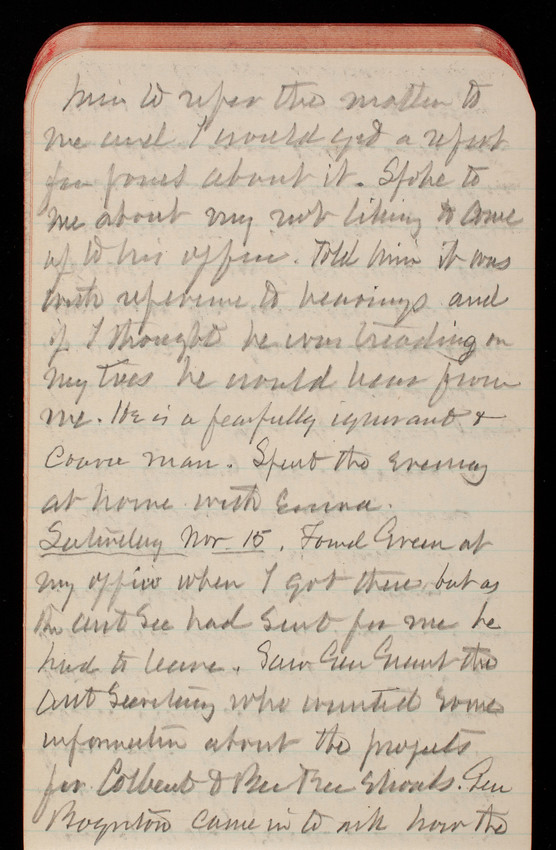 him to refer the matter to
me and I would get a report
for found about it. Spoke to
me about my not liking to come
up to his office. Told him it was
with reference to hearings and
if I thought he was treading on
my toes he would hear from
me. He is a fearfully ignorant &
coarse man. Spent the evening
at home with Emma.
Saturday Nov. 15. Found Green at
my office when I got there but as
the Asst Sec had sent for me he
had to leave. Saw Gen Grant the
Asst Secretary who wanted some
information about the projects
for Colbert & Bee Tree Shoals. Gen
Boynton came in to ask how the